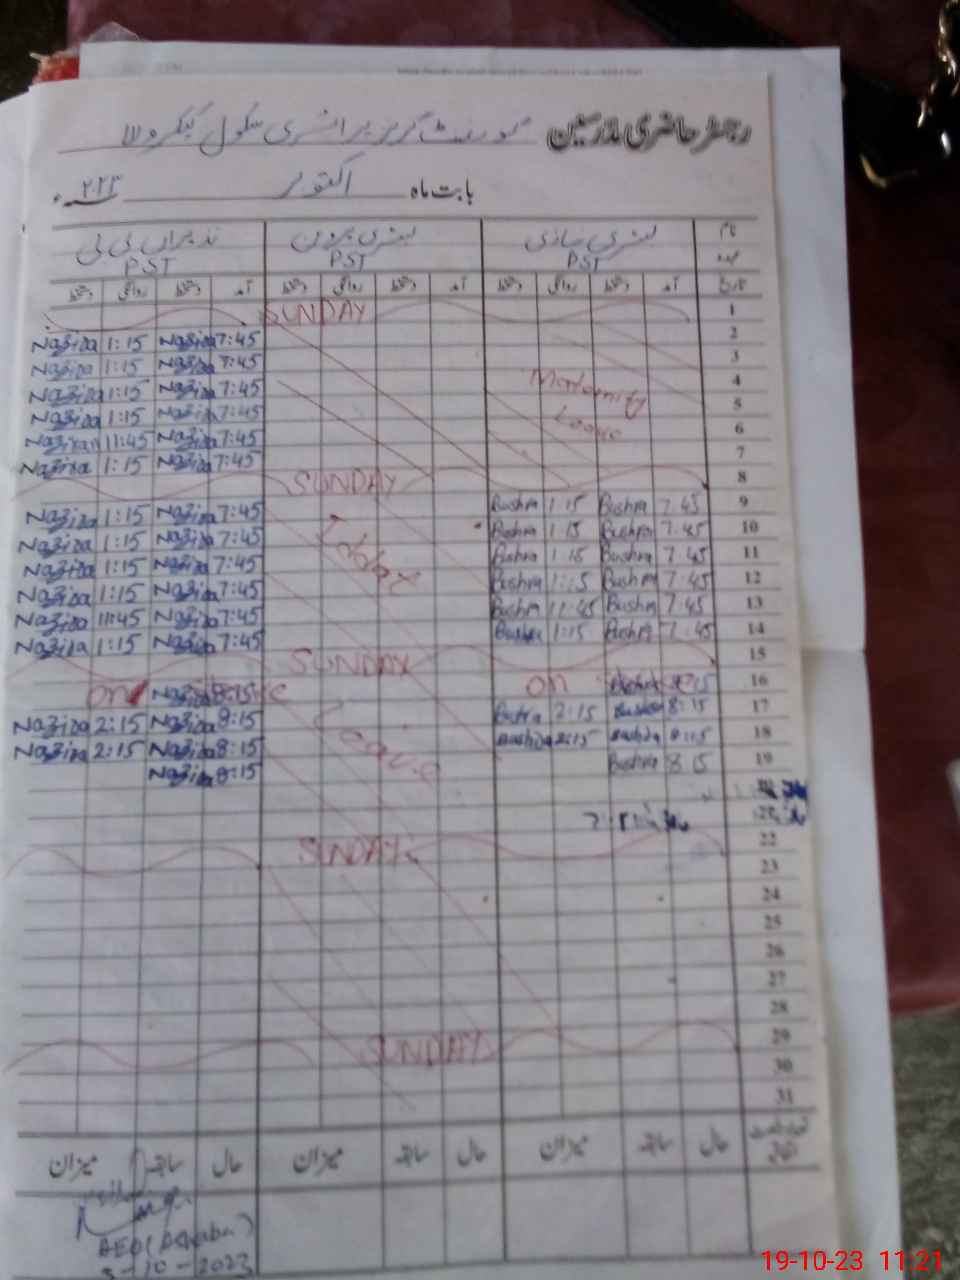 رجسٹر حاضری مدرسین گورنمنٹ گرلز پرائمری سکول
بابت ماہ اکتوبر ۲۰۲۳ء
نام بشریٰ نیازی بشریٰ پروین نذیراں بی بی
عہدہ PST PST PST
تاریخ آمد دستخط روانگی دستخط آمد دستخط روانگی دستخط آمد دستخط روانگی دستخط
1 SUNDAY
2 7:45 Nazira 1:15 Nazira
3 7:45 Nazira 1:15 Nazira
4 Maternity 7:45 Nazira 1:15 Nazira
5 7:45 Nazira 1:15 Nazira
6 Leave 7:45 Nazira 11:45 Nazira
7 7:45 Nazira 1:15 Nazira
8 SUNDAY
9 7:45 Bushra 1:15 Bushra 7:45 Nazira 1:15 Nazira
10 7:45 Bushra 1:15 Bushra 7:45 Nazira 1:15 Nazira
11 7:45 Bushra 1:15 Bushra 7:45 Nazira 1:15 Nazira
12 7:45 Bushra 1:15 Bushra 7:45 Nazira 1:15 Nazira
13 7:45 Bushra 11:45 Bushra 7:45 Nazira 11:45 Nazira
14 7:45 Bushra 1:15 Bushra 7:45 Nazira 1:15 Nazira
15 SUNDAY
16 8:15 Bushra on 8:15 Nazira on
17 8:15 Bushra 2:15 Bushra 8:15 Nazira 2:15 Nazira
18 8:15 Bushra 2:15 Bushra Leave 8:15 Nazira 2:15 Nazira
19 8:15 Bushra 8:15 Nazira
22 SUNDAY
23
24
25
26
27
28
29 SUNDAY
30
31
حال سابقہ میزان حال سابقہ میزان حال سابقہ میزان
AEO
10-2023
19-10-23 11:21